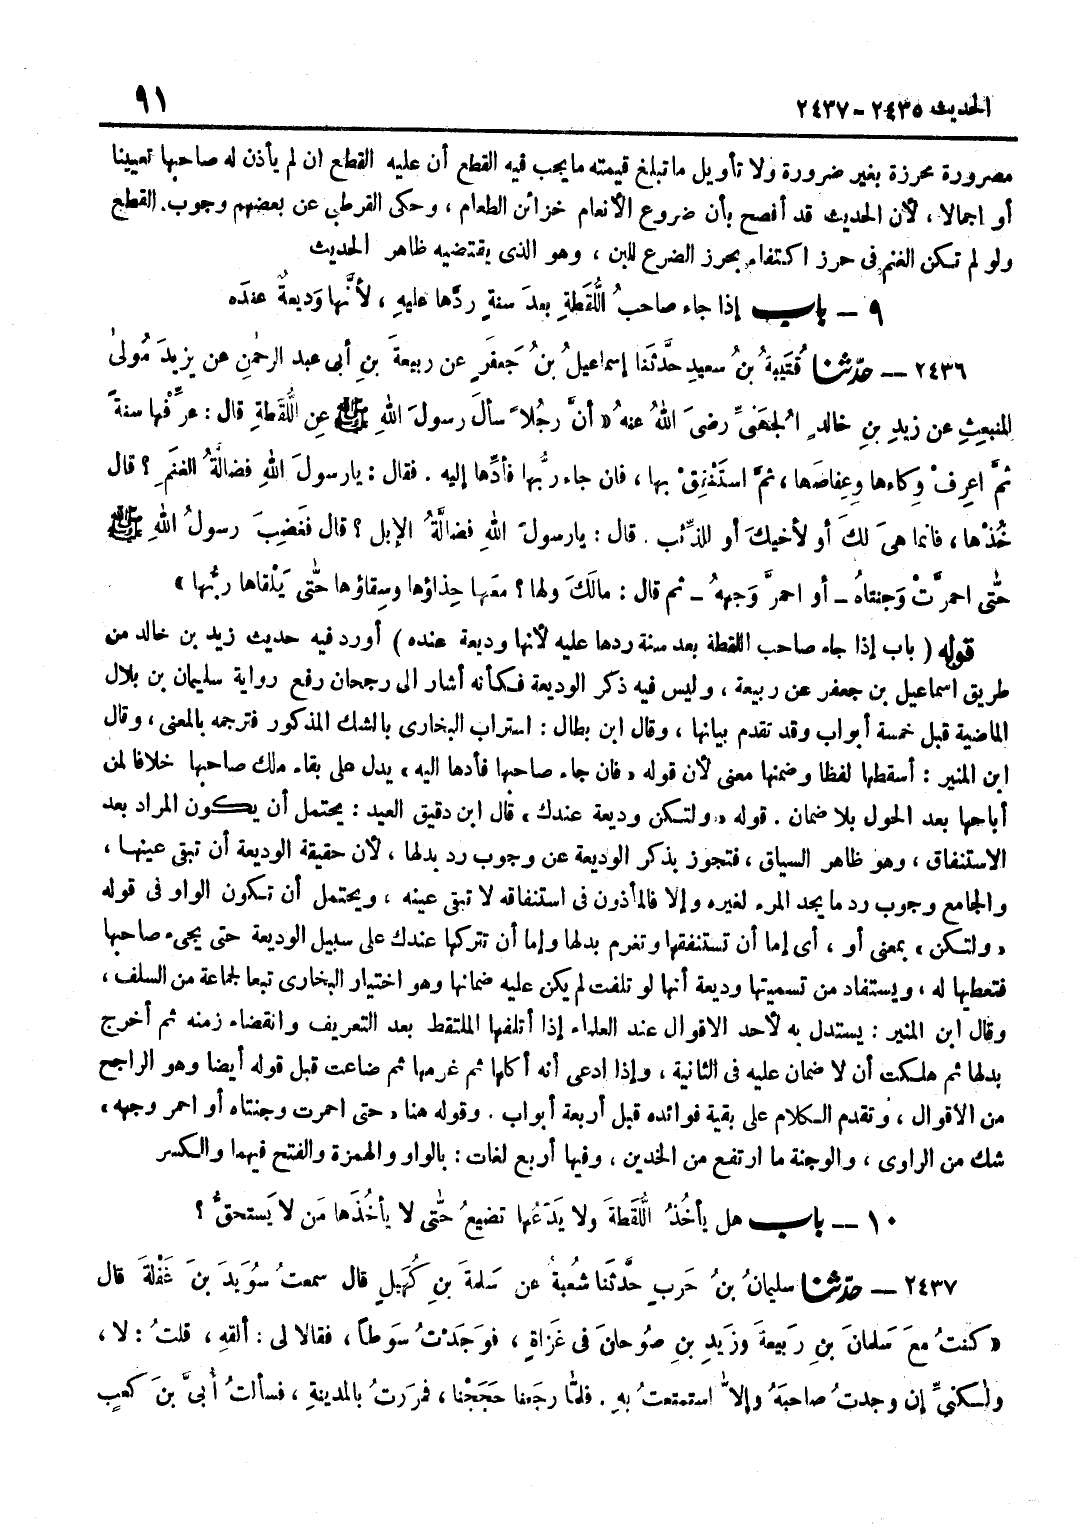 الحديث ٢٤٣٥ - ٢٤٣٧
٩١
مصرورة محرزة بغير ضرورة ولا تأويل ما تبلغ قيمته ما يجب فيه القطع أن عليه القطع ان لم يأذن له صاحبها تعيينا
أو اجمالا ، لأن الحديث قد أفصح بأن ضروع الأنعام خزائن الطعام ، وحكى القرطبي عن بعضهم وجوب القطع
ولو لم تكن الغنم فى حرز اكتفاء بحرز الضرع للبن ، وهو الذى يقتضيه ظاهر الحديث
٩ - باب إذا جاء صاحبُ اللُّقَطةِ بعدَ سنةٍ ردَّها عليهِ ، لأنَّها وَديعةٌ عندَه
٢٤٣٦ - حدّثنا قُتَيبةُ بنُ سعيدٍ حدَّثَنا إسماعيلُ بنُ جَعفرٍ عن ربيعةَ بنِ أبى عبد الرحمٰنِ عن يزيدَ مَولىٰ
المنبعثِ عن زيدِ بنِ خالدٍ الُجهَنىِّ رضىَ اللهُ عنهُ « أنَّ رجُلاً سألَ رسولَ اللهِ ﷺ عنِ اللُّقَطةِ قال : عرِّفْها سنةً
ثمَّ اعرِفْ وِكاءها وعِفاصَها ، ثمَّ استَنْفِقْ بها ، فان جاء ربُّها فأدِّها إليه . فقال : يارسولَ اللهِ فضالَّةُ الغنَمِ ؟ قال
خُذْها ، فانما هىَ لكَ أو لأخيكَ أو للذِّئب . قال : يارسولَ اللهِ فضالَّةُ الإبل ؟ قال فغَضِبَ رسولُ اللهِ ﷺ
حتّى احمرَّتْ وَجنتاهُ - أو احمرَّ وَجههُ - ثم قال : مالكَ ولها ؟ معَها حِذاؤها وسِقاؤها حتّى يَلْقاها ربُّها »
قوله ( باب إذا جاء صاحب اللقطة بعد سنة ردها عليه لأنها وديعة عنده ) أورد فيه حديث زيد بن خالد من
طريق اسماعيل بن جعفر عن ربيعة ، وليس فيه ذكر الوديعة فكأنه أشار الى رجحان رفع رواية سليمان بن بلال
الماضية قبل خمسة أبواب وقد تقدم بيانها ، وقال ابن بطال : استراب البخارى بالشك المذكور فترجمه بالمعنى ، وقال
ابن المنير : أسقطها لفظا وضمنها معنى لأن قوله « فان جاء صاحبها فأدها اليه » يدل على بقاء ملك صاحبها خلافا لمن
أباحها بعد الحول بلا ضمان . قوله « ولتكن وديعة عندك » قال ابن دقيق العيد : يحتمل أن يكون المراد بعد
الاستنفاق ، وهو ظاهر السياق ، فتجوز بذكر الوديعة عن وجوب رد بدلها ، لأن حقيقة الوديعة أن تبقى عينها ،
والجامع وجوب رد ما يجد المرء لغيره وإلا فالمأذون فى استنفاقه لا تبقى عينه ، ويحتمل أن تكون الواو فى قوله
« ولتكن » بمعنى أو ، أى إما أن تستنفقها وتغرم بدلها وإما أن تتركها عندك على سبيل الوديعة حتى يجىء صاحبها
فتعطيها له ، ويستفاد من تسميتها وديعة أنها لو تلفت لم يكن عليه ضمانها وهو اختيار البخارى تبعا لجماعة من السلف ،
وقال ابن المنير : يستدل به لأحد الاقوال عند العلماء إذا أتلفها الملتقط بعد التعريف وانقضاء زمنه ثم أخرج
بدلها ثم هلكت أن لا ضمان عليه فى الثانية ، وإذا ادعى أنه أكلها ثم غرمها ثم ضاعت قبل قوله أيضا وهو الراجح
من الأقوال ، وتقدم الكلام على بقية فوائده قبل أربعة أبواب . وقوله هنا « حتى احمرت وجنتاه أو احمر وجهه »
شك من الراوى ، والوجنة ما ارتفع من الخدين ، وفيها أربع لغات : بالواو والهمزة والفتح فيهما والكسر
١٠ - باب هل يأخُذُ اللُّقَطةَ ولا يَدَعُها تضيعُ حتّى لا يأخُذَها مَن لا يَستحقُّ ؟
٢٤٣٧ - حدّثنا سليمانُ بنُ حَربٍ حدَّثَنا شعبةُ عن سَلمةَ بنِ كُهَيلٍ قال سمعتُ سُوَيدَ بنَ غَفْلةَ قال
« كنتُ معَ سَلمانَ بنِ رَبيعةَ وزَيدِ بنِ صُوحانَ فى غَزاةٍ ، فوَجَدْتُ سَوطاً ، فقالا لى : ألقِه ، قلتُ : لا ،
ولٰكنىِّ إن وجدتُ صاحبَهُ وإلاّ استمتعتُ بهِ . فلمّا رجَعنا حَجَجْنا ، فمرَرتُ بالمدينةِ ، فسألتُ أُبىَّ بنَ كعبٍ